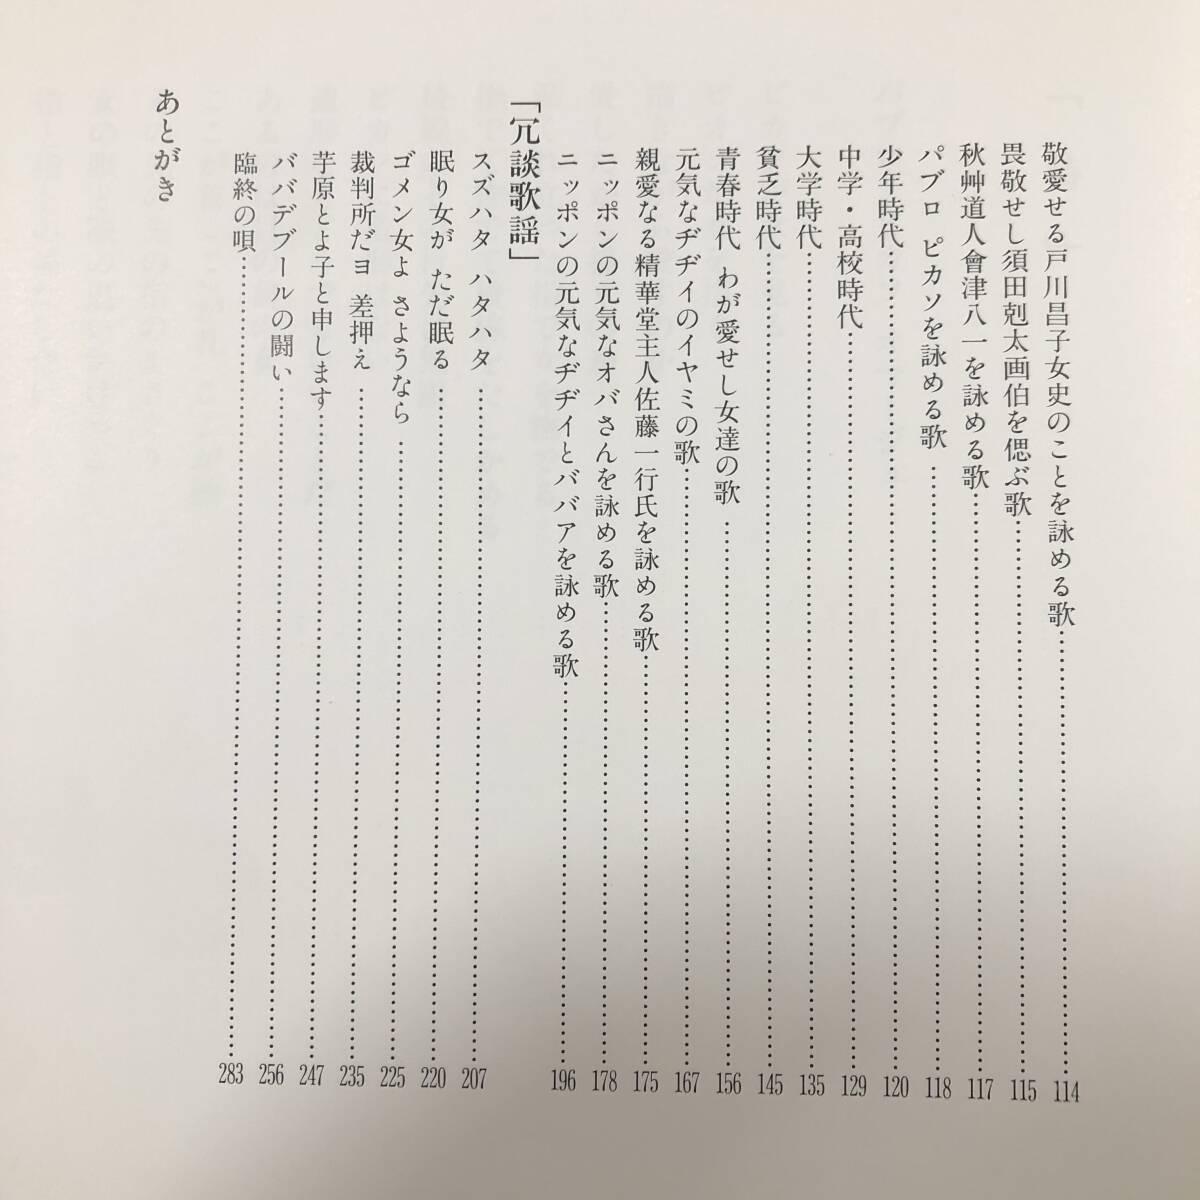 敬愛せる戸川昌子女史のことを詠める歌……114
畏敬せし須田剋太画伯を偲ぶ歌……115
秋艸道人會津八一を詠める歌……117
パブロ ピカソを詠める歌……118
少年時代……120
中学・高校時代……129
大学時代……135
貧乏時代……145
青春時代 わが愛せし女達の歌……156
元気なヂヂイのイヤミの歌……167
親愛なる精華堂主人佐藤一行氏を詠める歌……175
ニッポンの元気なオバさんを詠める歌……178
ニッポンの元気なヂヂイとババアを詠める歌……196
「冗談歌謡」
スズハタ ハタハタ……207
眠り女が ただ眠る……220
ゴメン女よ さようなら……225
裁判所だヨ 差押え……235
芋原とよ子と申します……247
ババデブールの闘い……256
臨終の唄……283
あとがき